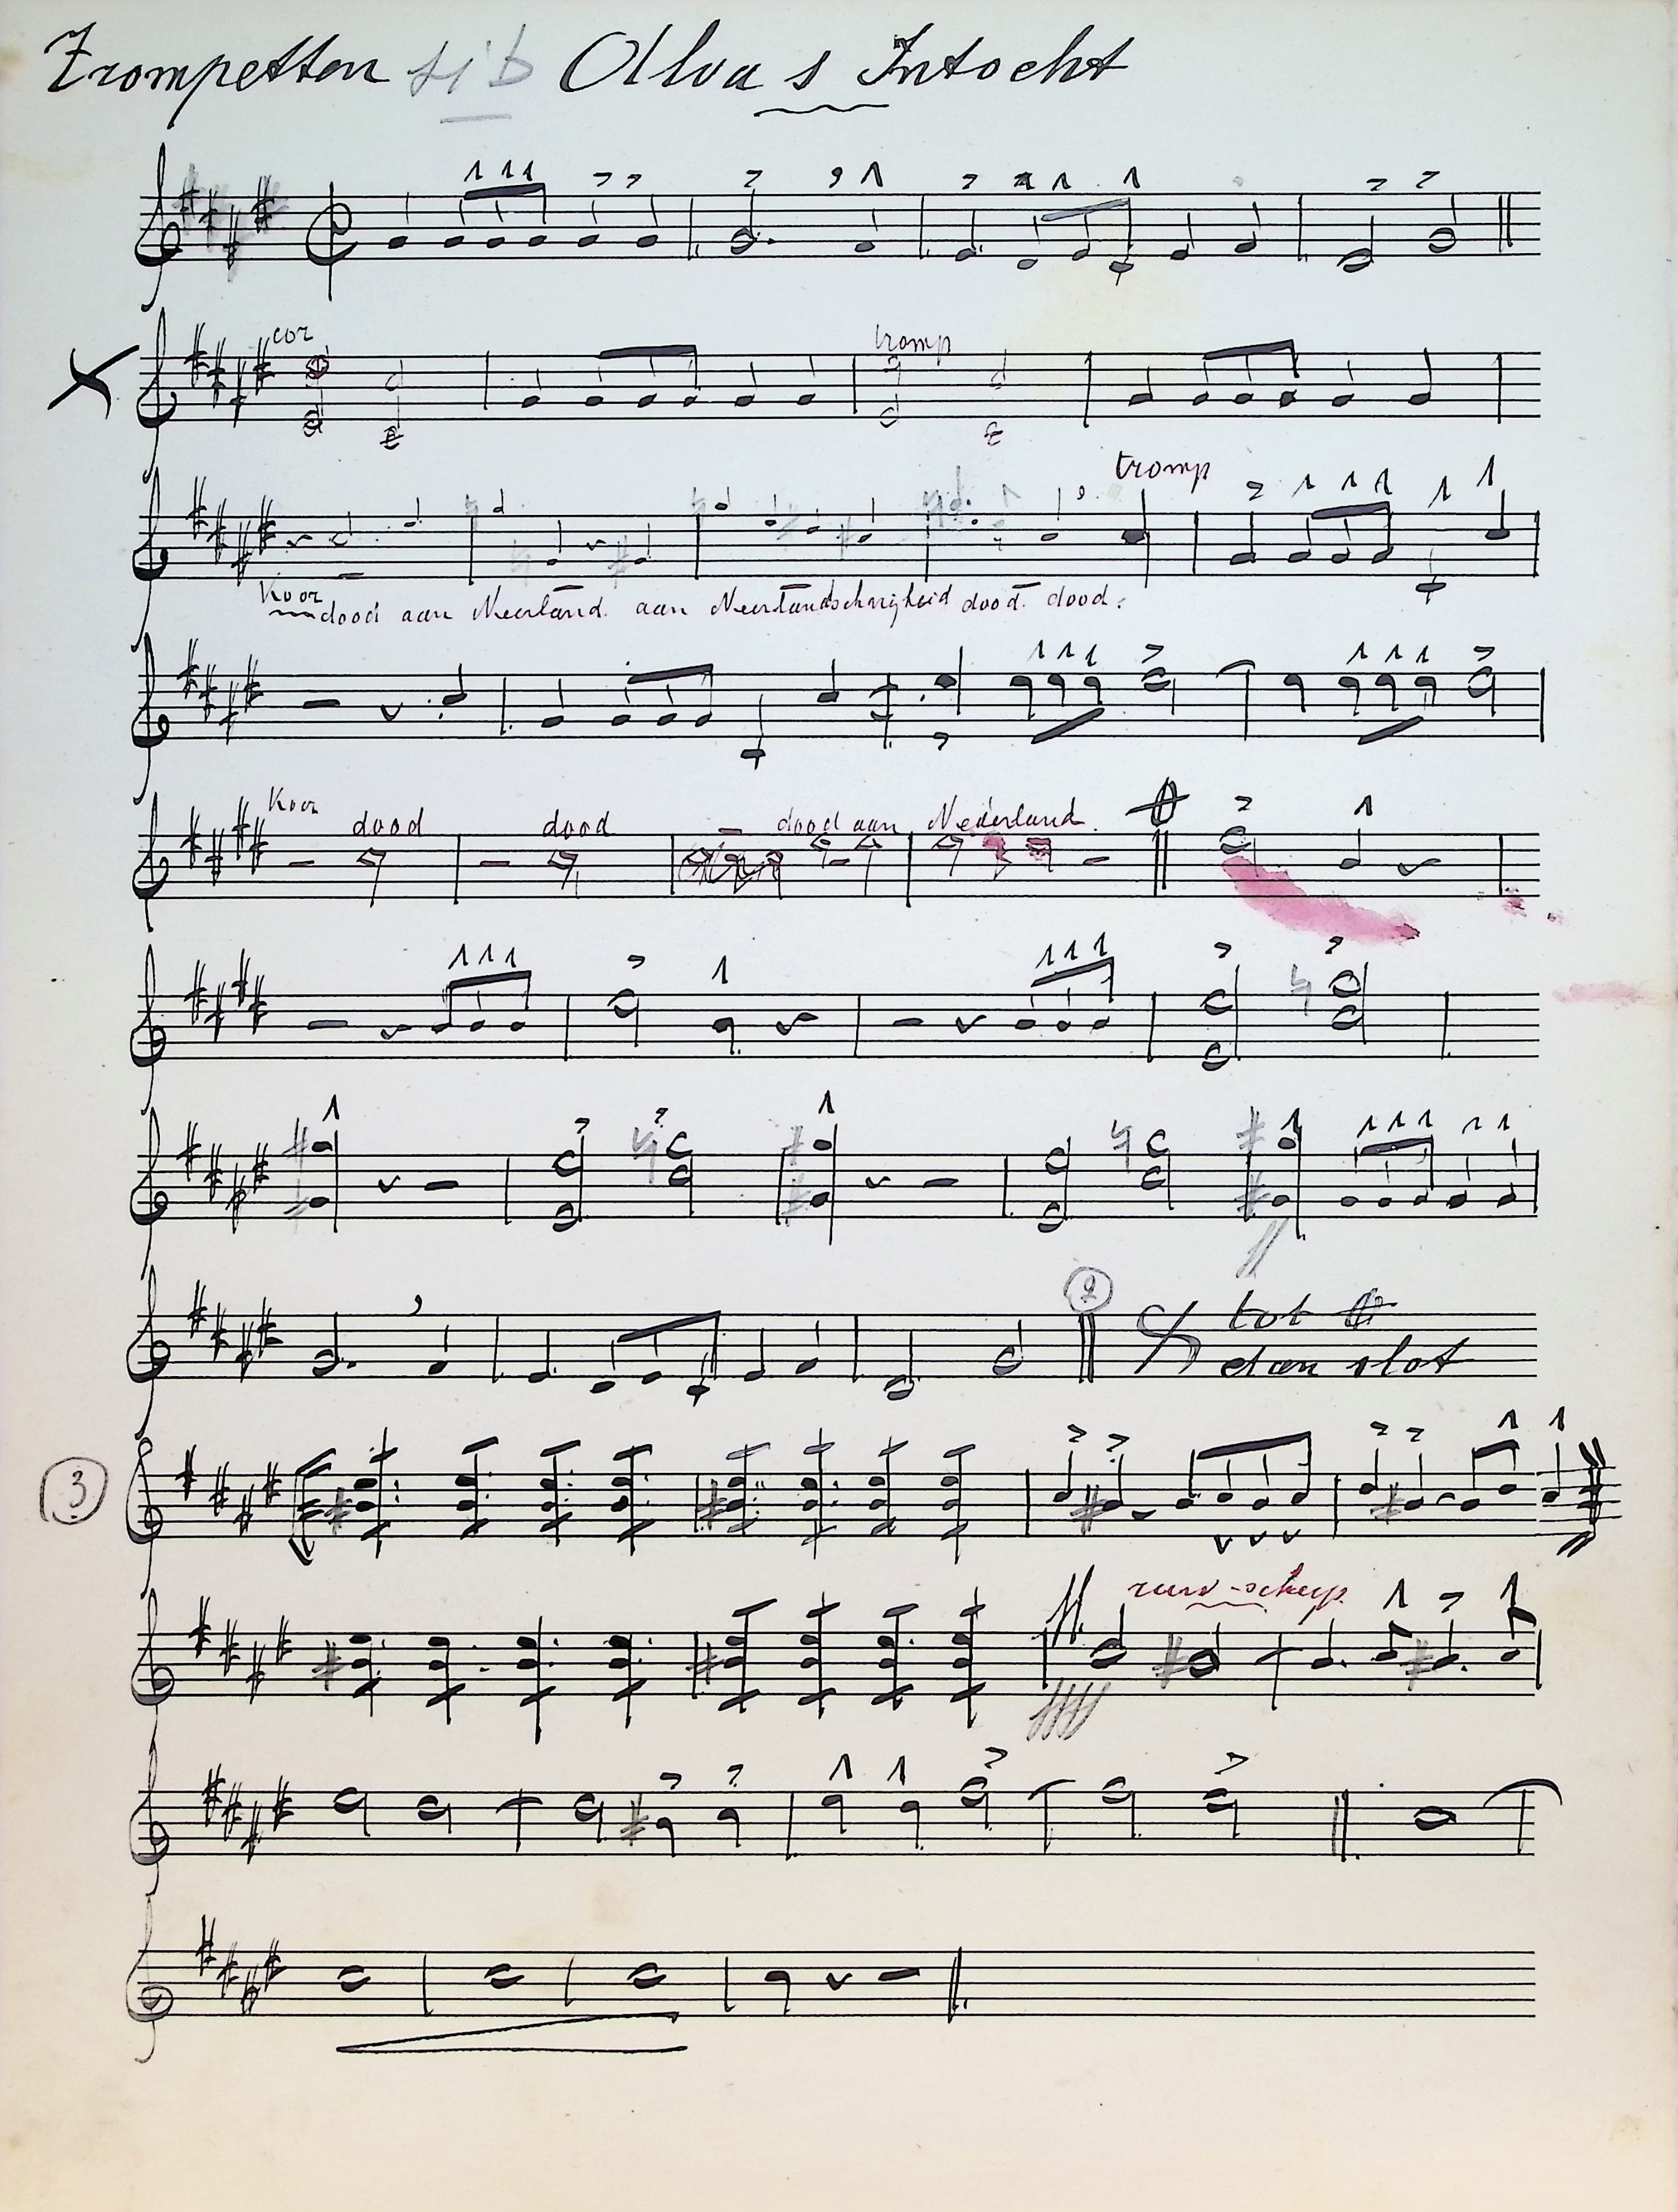 Trompetten si b Alva's Intocht
cor
tromp
tromp
Koor
dood aan Neerland. aan Neerlandschrijheid dood. dood.
Koor
dood dood dood aan Nederland.
2
tot
dan slot
3